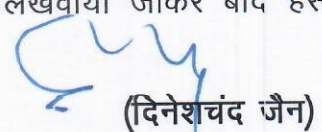 लिखवाया जाकर बाद हस
(दिनेशचंद जैन)